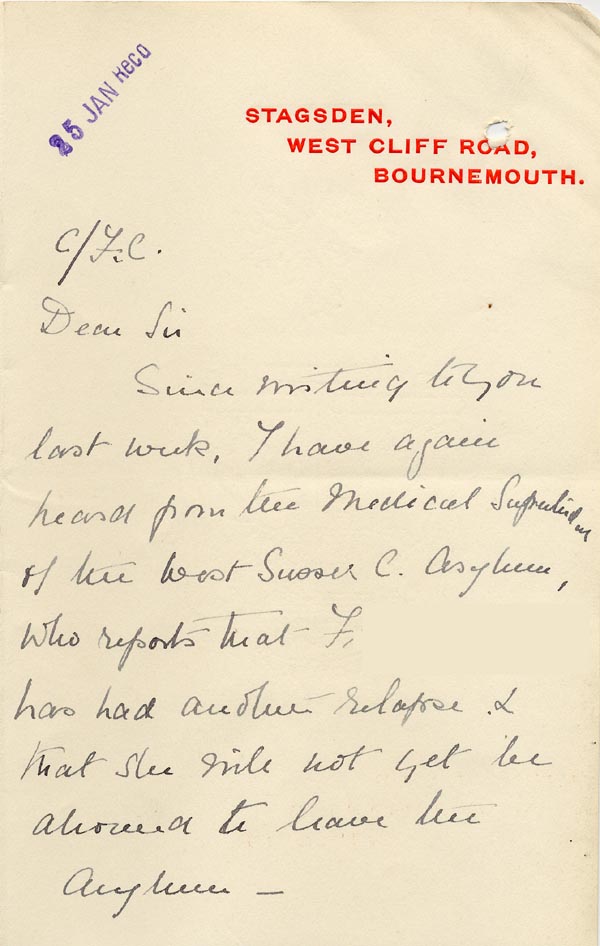 25 JAN Recd
STAGSDEN,
WEST CLIFF ROAD,
BOURNEMOUTH.
C/F.C.
Dear Sir
Since writing to you
last week, I have again
heard from the Medical Superintendent
of the West Sussex C. Asylum,
who reports that F.
has had another relapse &
that she will not yet be
allowed to leave the
Asylum —